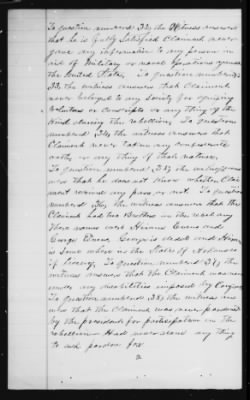 To question numbered 32, the witness answers
that he is fully satisfied Claimant never
gave any information to any person in
aid of Military or naval operations against
the United States, To question numbered
33, the witness answers that Claimant
never belonged to any Society for
or any thing of the
Kind during the rebellion. To question
numbered 34, the witness answers that
Claimant never taken any confederate
oath, or any thing of that nature.
To question numbered 35, the witness
was that he does not know whether Claimant
a pass, or not. To question
numbered 36, the witness answers that the
Claimant had two Brothers in the rebel army
There names was
George is dead and
is Some where in the State of Arkansas
if living, To question numbered 37, the
witness answers that the Claimant was never
under any disabilities imposed by Congress
To question numbered 38, the witness
that the Claimant was never pardoned
by the president for participation in the
rebellion Had never done any thing
to ask pardon for